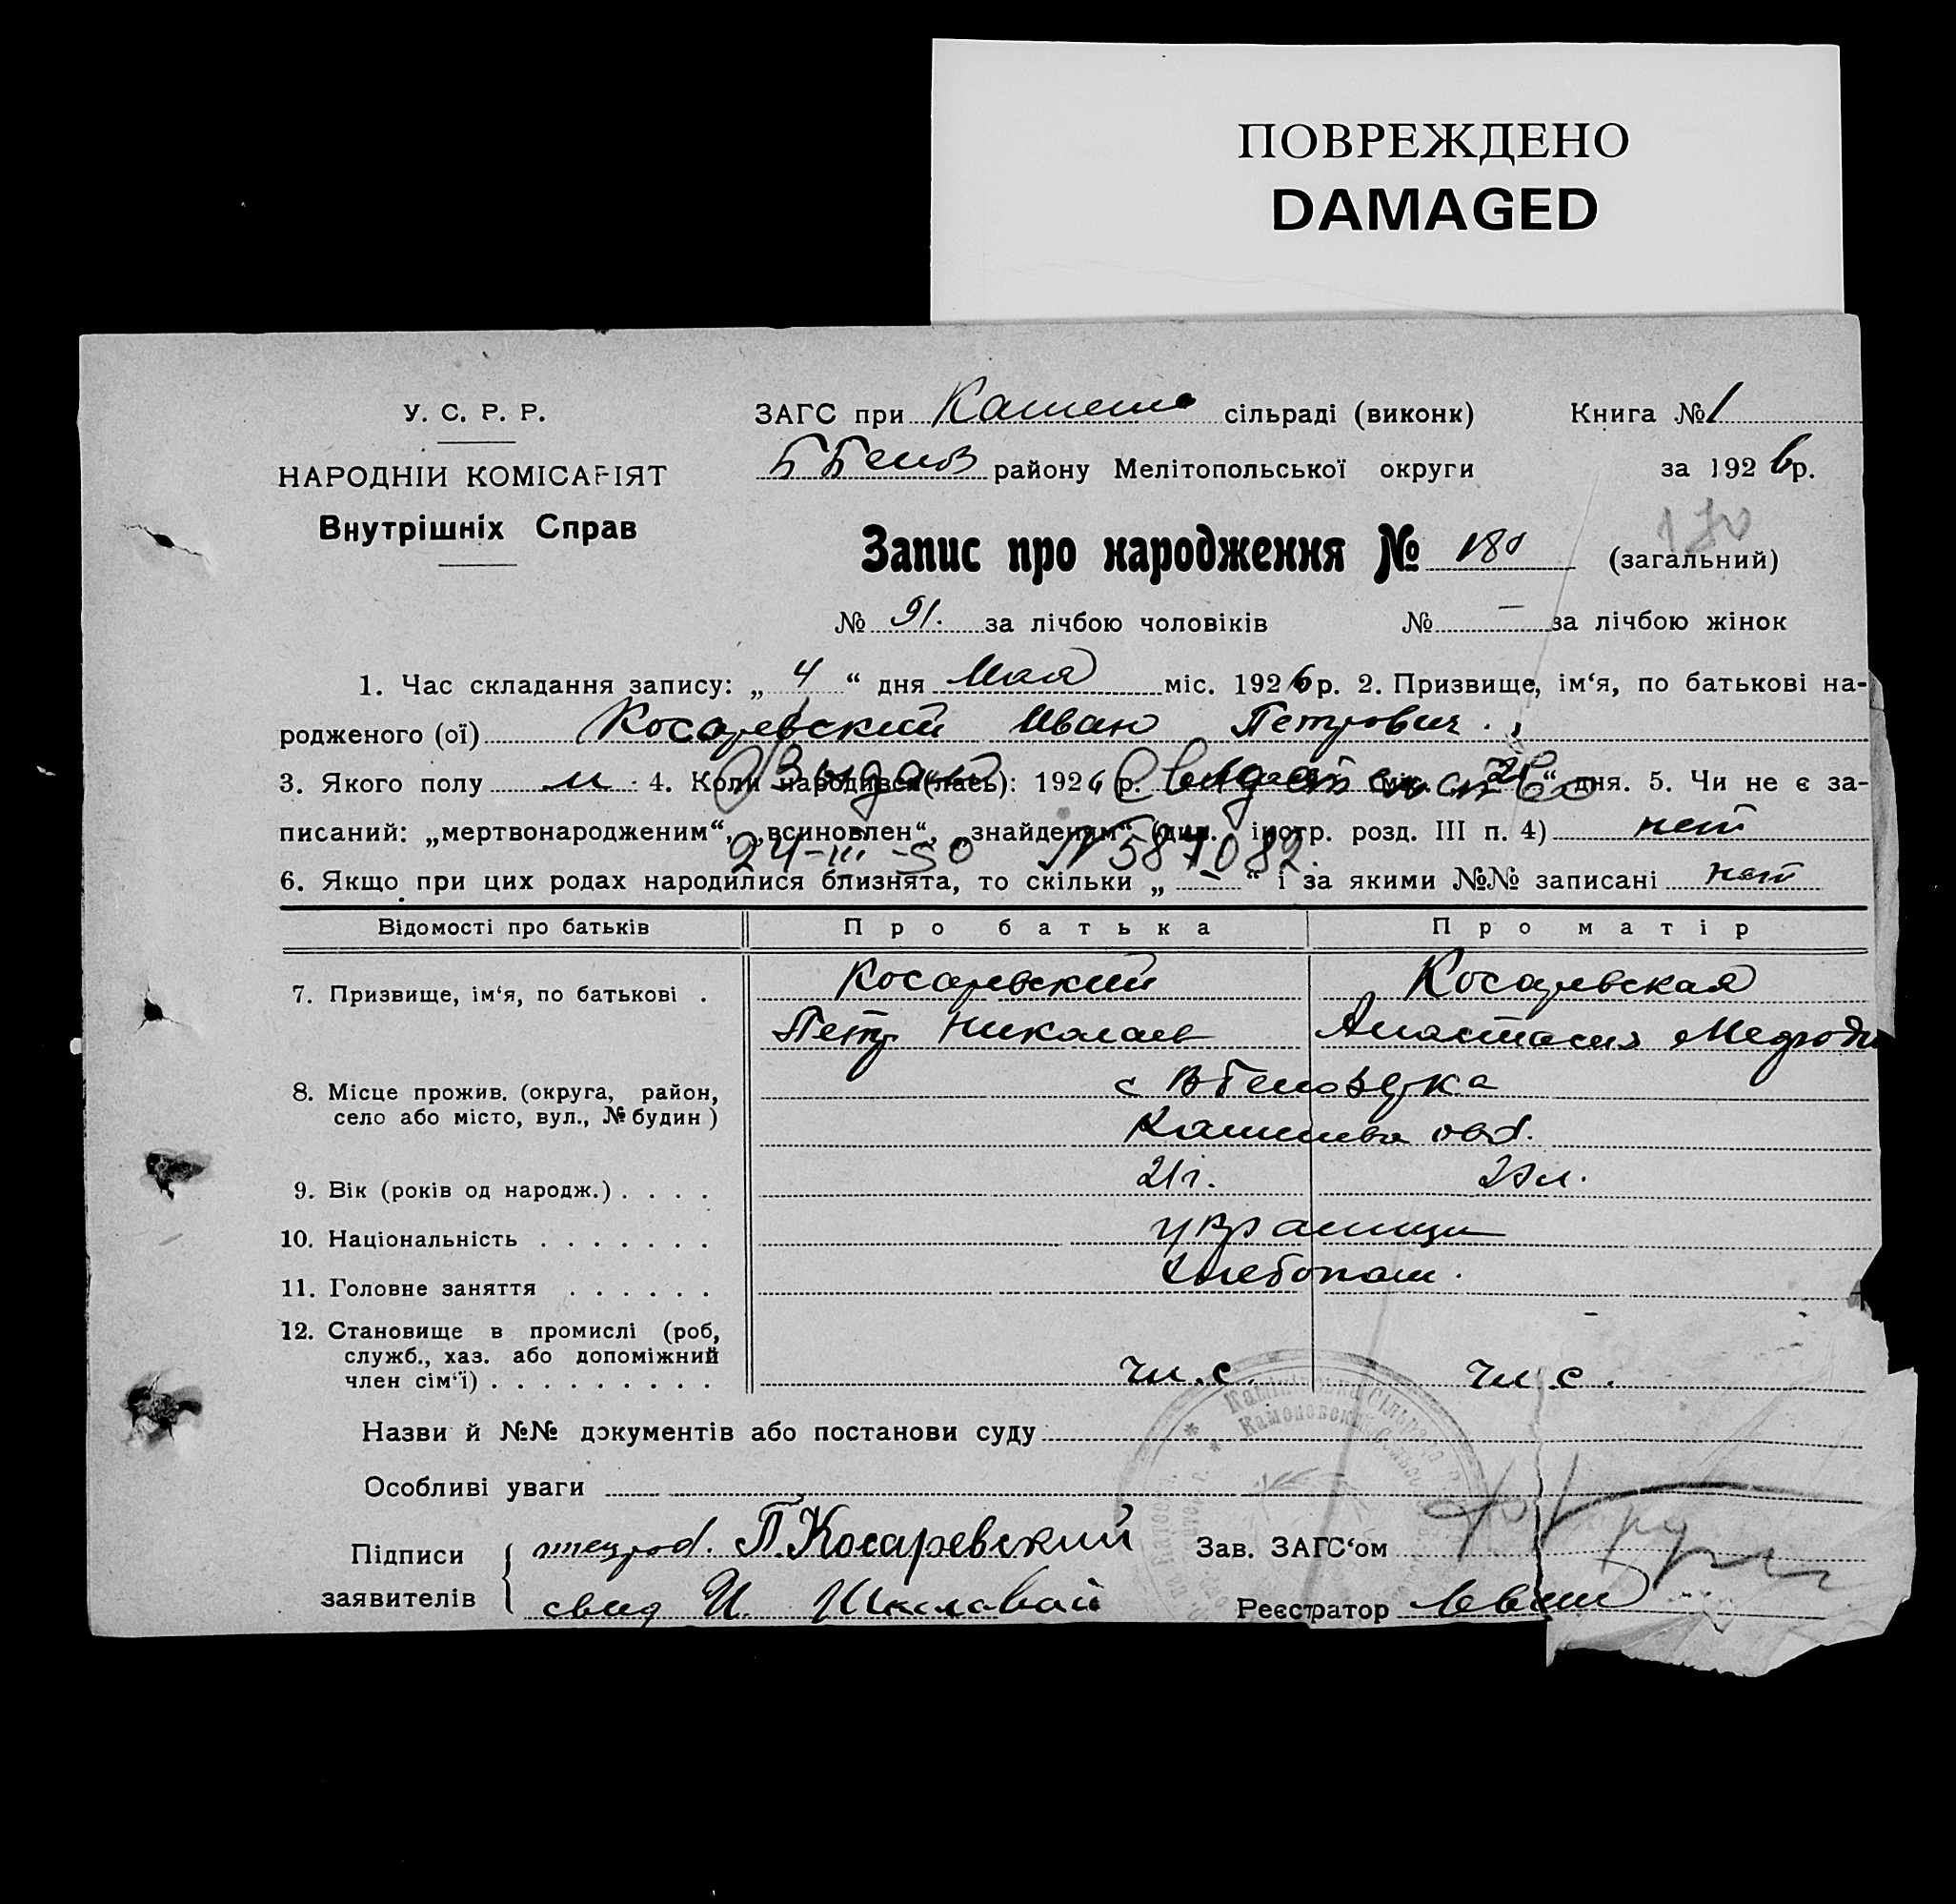 ПОВРЕЖДЕНО
DAMAGED
У. С. Р. Р.
НАРОДНІЙ КОМІСАРІЯТ
Внутрішніх Справ
ЗАГС при сільраді (виконк) Книга № 1
району Мелітопольської округи за 1926 р.
180
Запис про народження № 180 (загальний)
№ 91. за лічбою чоловіків № – за лічбою жінок
1. Час складання запису: „ 4 “ дня Мая міс. 1926 р. 2. Призвище, ім‘я, по батькові на-
родженого (ої) Косаревский Иван Петрович.
3. Якого полу м 4. Коли народився(лась): 1926 р. міс. „ “ дня. 5. Чи не є за-
Выдано свидетельство
писаний: „мертвонародженим“, „всиновлен“, „знайденим“ (див. інстр. розд. III п. 4) нет
24-III-50 № 587082
6. Якщо при цих родах народилися близнята, то скільки „ – “ і за якими №№ записані нет
Відомості про батьків Про батька Про матір
7. Призвище, ім‘я, по батькові . Косаревский Косаревская
Петр Николаев Анастасия
8. Місце прожив. (округа, район, с
село або місто, вул., № будин )
9. Вік (років од народж.) . . . . 21 г.
10. Національність . . . . . . . украинцы
11. Головне заняття . . . . . . Хлебопаш.
12. Становище в промислі (роб,
служб., хаз. або допоміжний
член сім‘ї) . . . . . . . . . чл. с. чл. с.
Назви й №№ документів або постанови суду
Особливі уваги
Підписи П. Косаревский Зав. ЗАГС‘ом
заявителів свид И. Реєстратор